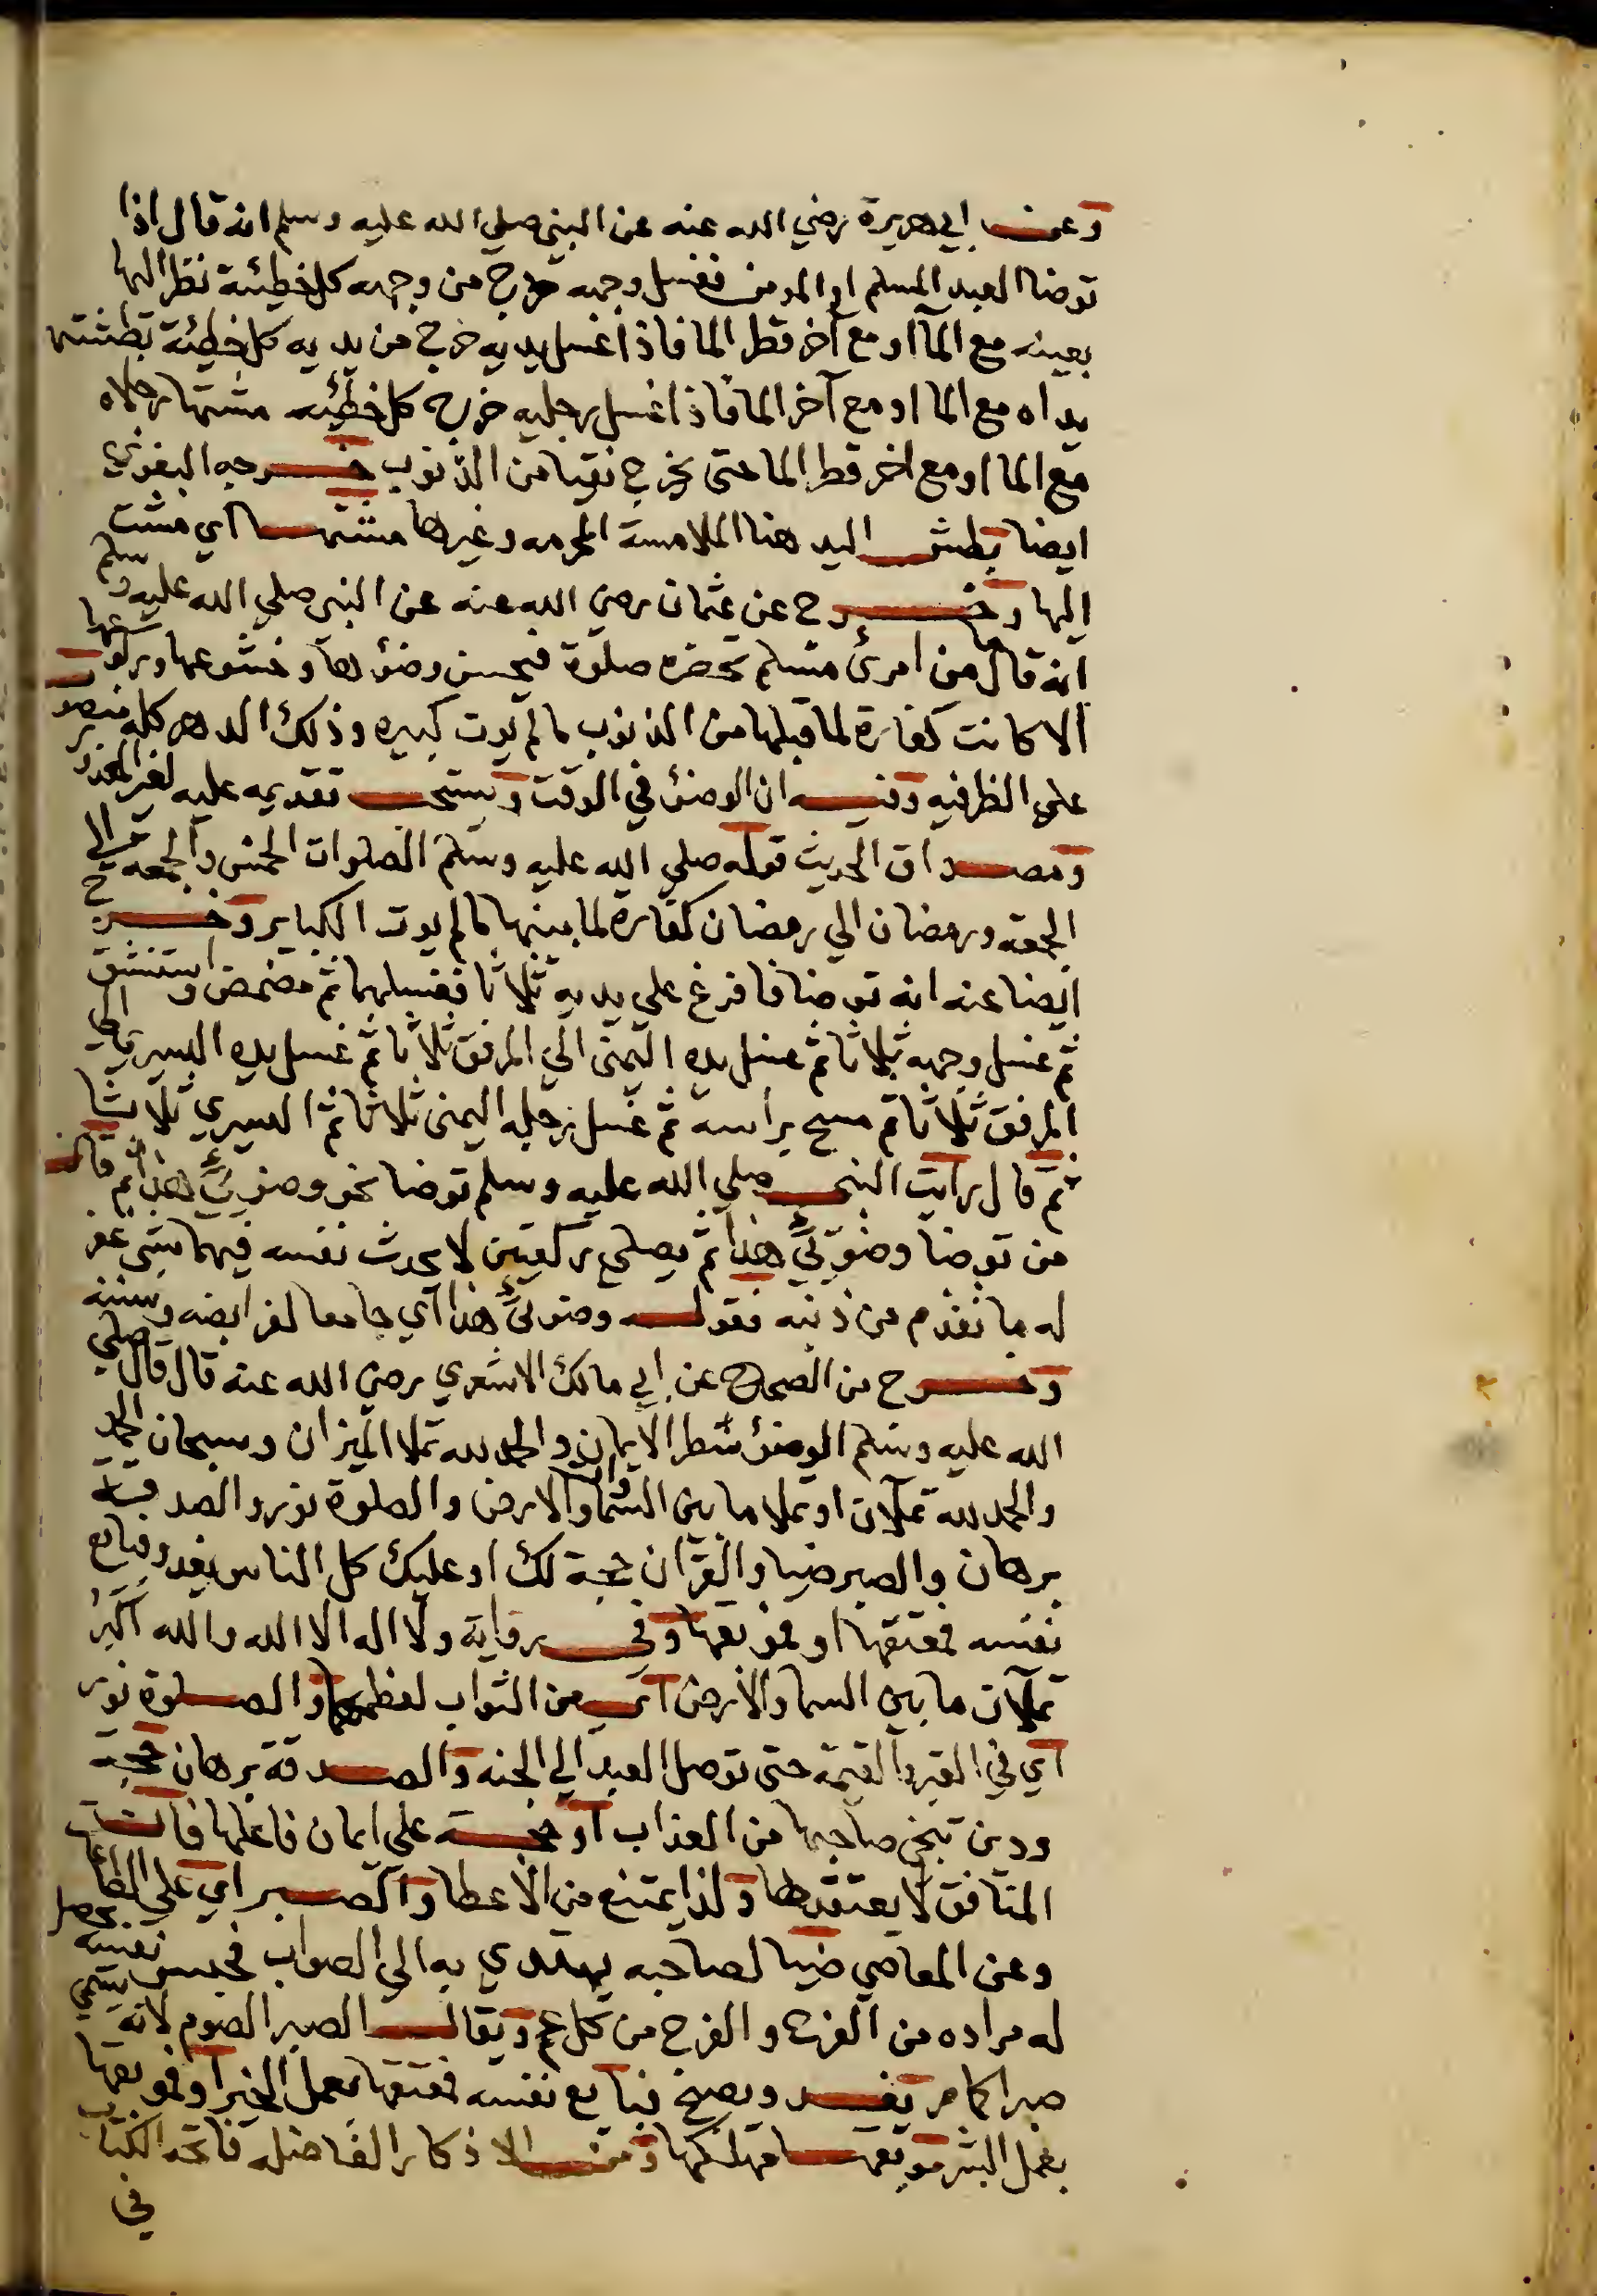 وعن ابي هريرة رضي الله عنه عن النبي صلي الله عليه وسلم انه قال اذا
توضا العبد المسلم او المومن فغسل وجهه خرج من وجهه كل خطيئة نظر اليها
بعينه مع المآ او مع آخر قطر الما فاذا غسل يديه خرج من يديه كل خطيئة بطشتها
يداه مع الما او مع آخر الما فاذا غسل رجليه خرج كل خطيئه مشتها رجلاه
مع الما او مع اخر قطر الما حتى يخرج نقيا من الذنوب خرجه البغوي
ايضا بطش اليد هنا الملامسة المحرمه وغيرها مشتها اي مشت
اليها وخرج عن عثمان رضي الله عنه عن النبي صلي الله عليه وسلم
انه قال ما من امرئ مسلم تحضره صلوة فيحسن وضؤها وخشوعها وركوعها
الا كانت كفارة لما قبلها من الذنوب ما لم يوت كبيره وذلك الدهر كله منصوب
على الظرفيه وفيه ان الوضؤ في الوقت ويستحب تقديمه عليه لغير المعذور
ومصداق الحديث قوله صلي الله عليه وسلم الصلوات الخمس والجمعه الى
الجمعه ورمضان الي رمضان كفارة لما بينها ما لم يوت الكباير وخرج
ايضا عنه انه توضا فافرغ علي يديه ثلاثا فغسلهما ثم مضمض واستنشق
ثم غسل وجهه ثلاثا ثم غسل يده اليمنى الي المرفق ثلاثا ثم غسل يده اليسري الي
المرفق ثلاثا ثم مسح براسه ثم غسل رجله اليمنى ثلاثا ثم اليسري ثلاثا
ثم قال رايت النبي صلي الله عليه وسلم توضا نحو وضوئي هذا ثم قال
من توضا وضوئي هذا ثم يصلي ركعتين لا يحدث نفسه فيهما بشي غفر
له ما تقدم من ذنبه فقوله وضوئي هذا اي جامعا لفرايضه وسننه
وخرج من الصحاح عن ابي مالك الاشعري رضي الله عنه قال قال صلي
الله عليه وسلم الوضؤ شطر الايمان والحمد لله تملا الميزان وسبحان الله
والحمد لله تملآن او تملا ما بين السما والارض والصلوة نور والصدقة
برهان والصبر ضيا والقرآن حجة لك او عليك كل الناس يغدو فبايع
نفسه فمعتقها او موبقها وفي رواية ولا اله الا الله والله اكبر
تملآن ما بين السما والارض اي من الثواب لعظمهما والصلوة نور
اي في القبر والقيمة حتى توصل العبد الي الجنه والصدقة برهان حجة
ودين تنجي صاحبها من العذاب او حجة على ايمان فاعلها فان
المنافق لا يعتقدها ولذا يمتنع من الاعطا والصبر اي علي الطاعات
وعن المعاصي ضيا لصاحبه يهتدي به الي الصواب فحبس نفسه يحصل
له مراده من الفرح والفرج من كل غم ويقال الصبر الصوم لانه يسمي
صبرا كما مر يغدو ويصبح فبايع نفسه فمعتقها بعمل الخير او موبقها
بعمل الشر موبقها مهلكها ومن الاذكار الفاضله فاتحه الكتاب
في